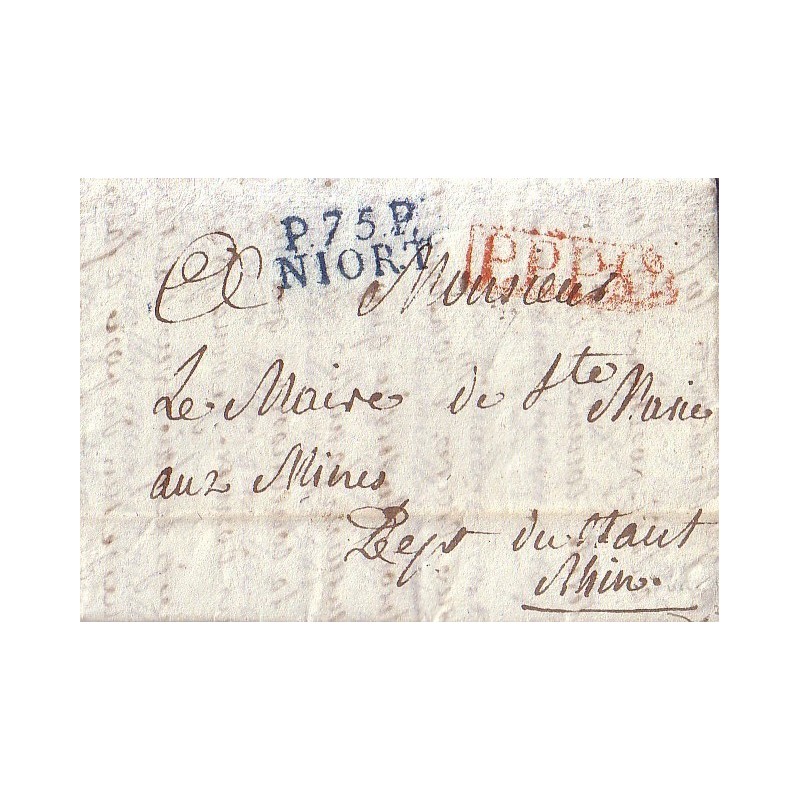 P.75.P.
NIORT
P.P.P.P.
Monsieur
Le Maire de Ste Marie
aux Mines
Dept du haut
Rhin.